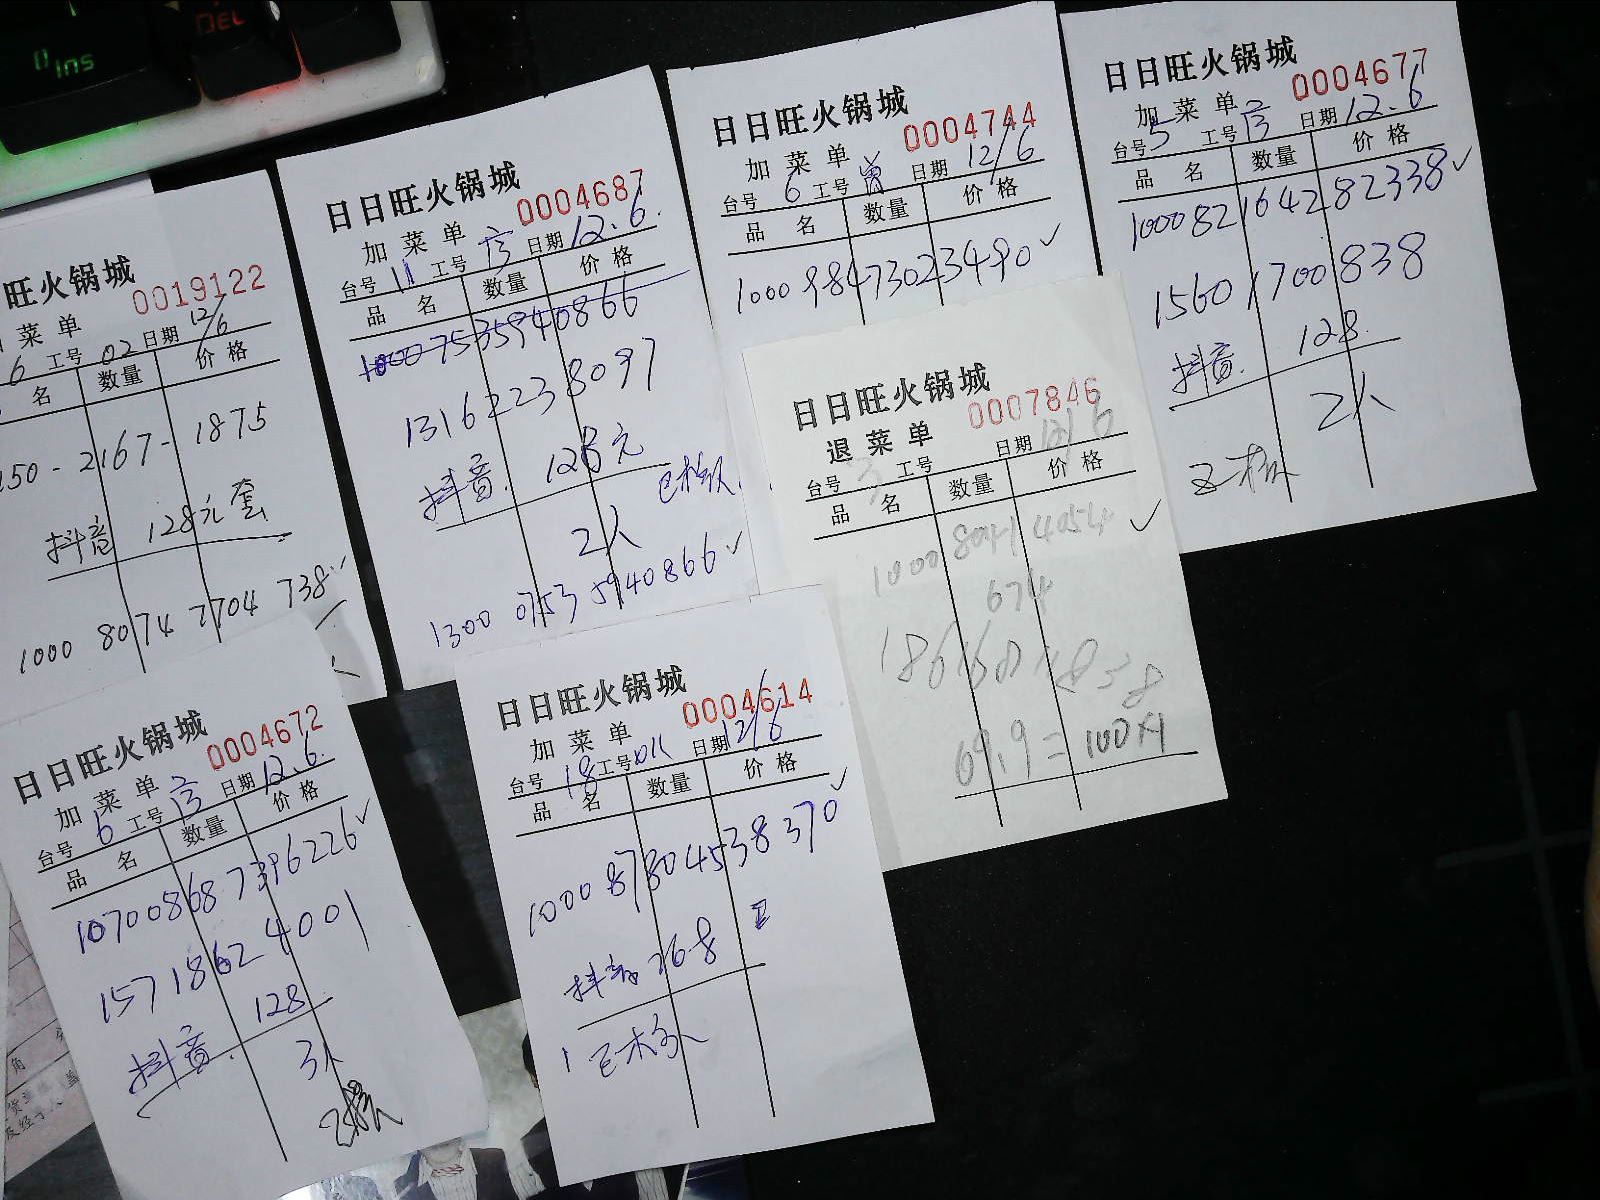 Ins
DEL
旺火锅城
0019122
菜单
6 工号 02 日期 12/6
名 数量 价格
150-2167-1875
抖音 128元套
1000 8074 7704 738
日日旺火锅城
0004687
加菜单
台号 11 工号 日期 12.6.
品名 数量 价格
1000 7535940866
13162238097
抖音. 128元
2人 已核
1300 0753 5940866
日日旺火锅城
0004744
加菜单
台号 6 工号 曾 日期 12/6
品名 数量 价格
1000 98473023490
日日旺火锅城
0004677
加菜单
台号 5 工号 日期 12.6
品名 数量 价格
1000 82 1642 82338
1560 1700 838
抖音. 128.
2人
已核
日日旺火锅城
0007846
退菜单
台号 工号 日期 12/6
品名 数量 价格
1000 8041 4054
674
69.9=100斤
日日旺火锅城
0004672
加菜单
台号 6 工号 日期 12.6.
品名 数量 价格
10700868 7396226
15718624001
抖音. 128
3人
日日旺火锅城
0004614
加菜单
台号 18 工号 011 日期 12/6
品名 数量 价格
1000 87804538 370
抖音 268
已核
角